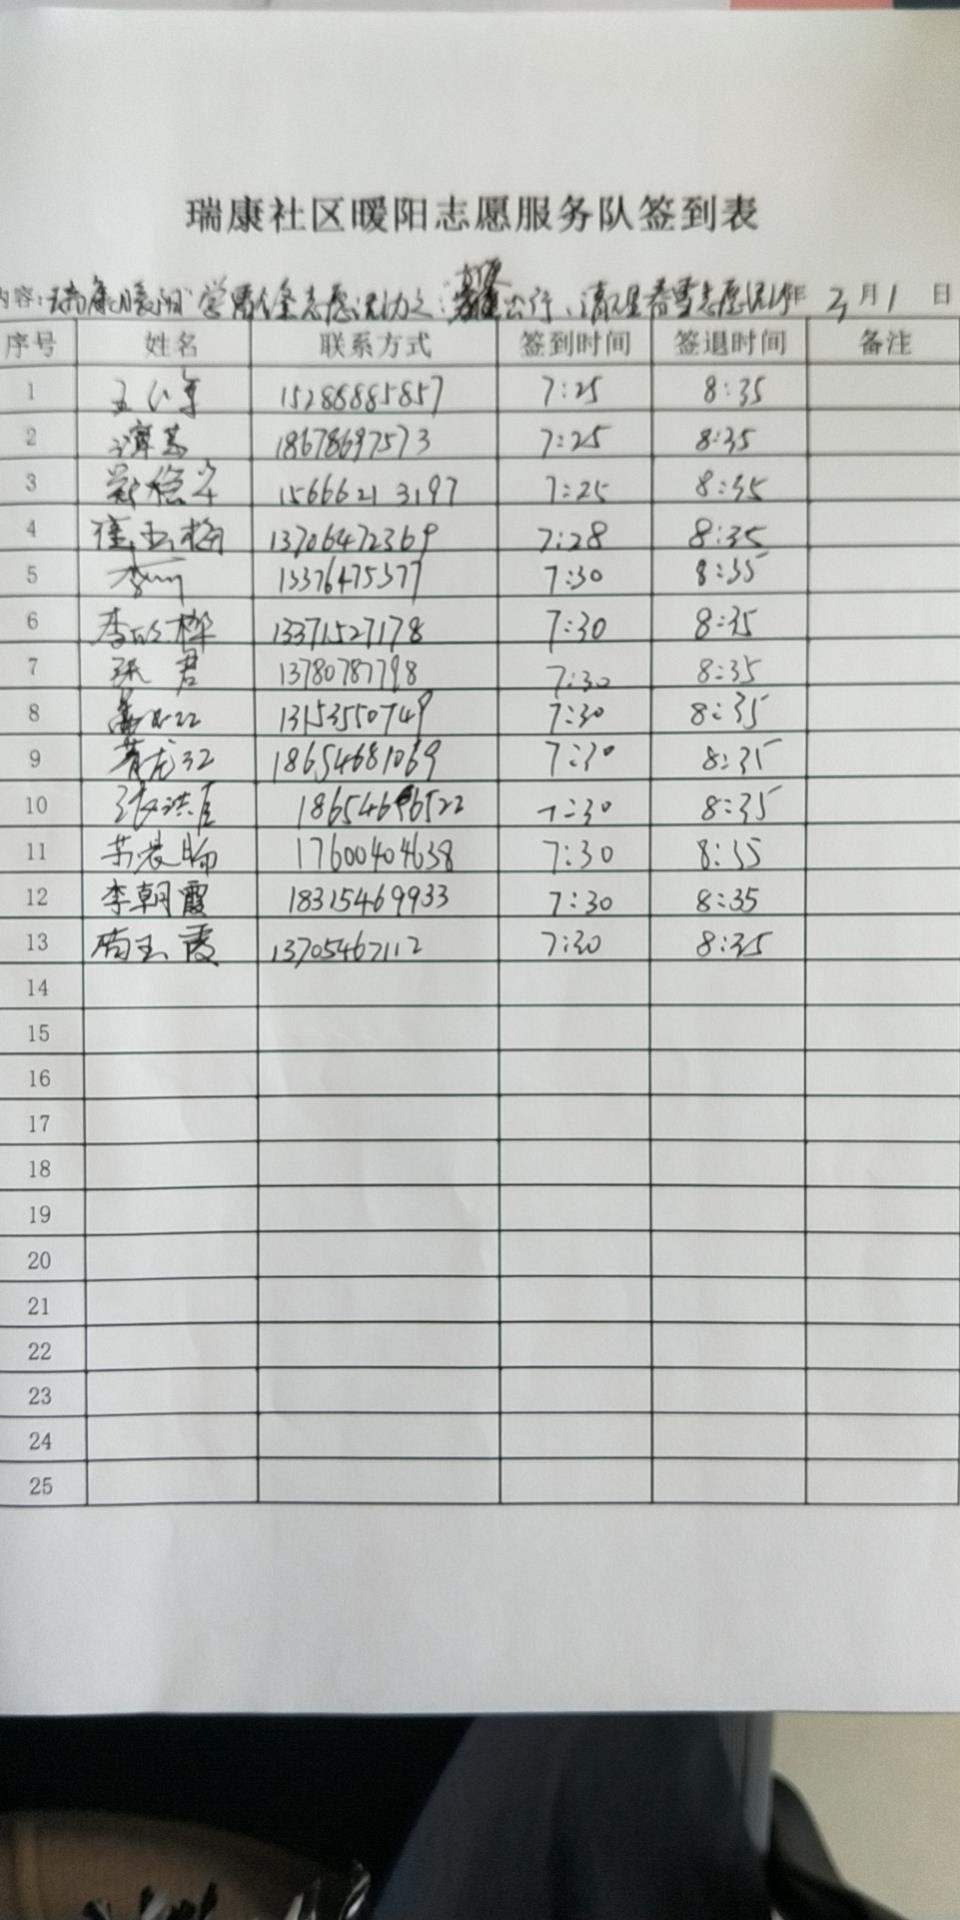 瑞康社区暖阳志愿服务队签到表
内容: 瑞康暖阳 学雷锋 志愿活动之: 出行、清理春雪志愿活动 年 3 月 1 日
序号 姓名 联系方式 签到时间 签退时间 备注
1 15288885857 7:25 8:35
2 谭芸 18678697573 7:25 8:35
3 15666213197 7:25 8:35
4 崔玉梅 13706472369 7:28 8:35
5 13376475377 7:30 8:35
6 李欣桦 13371527178 7:30 8:35
7 张君 13780787798 7:30 8:35
8 13153550749 7:30 8:35
9 18654681069 7:30 8:35
10 7:30 8:35
11 17600404638 7:30 8:35
12 李朝霞 18315469933 7:30 8:35
13 尚玉霞 13705467112 7:30 8:35
14
15
16
17
18
19
20
21
22
23
24
25